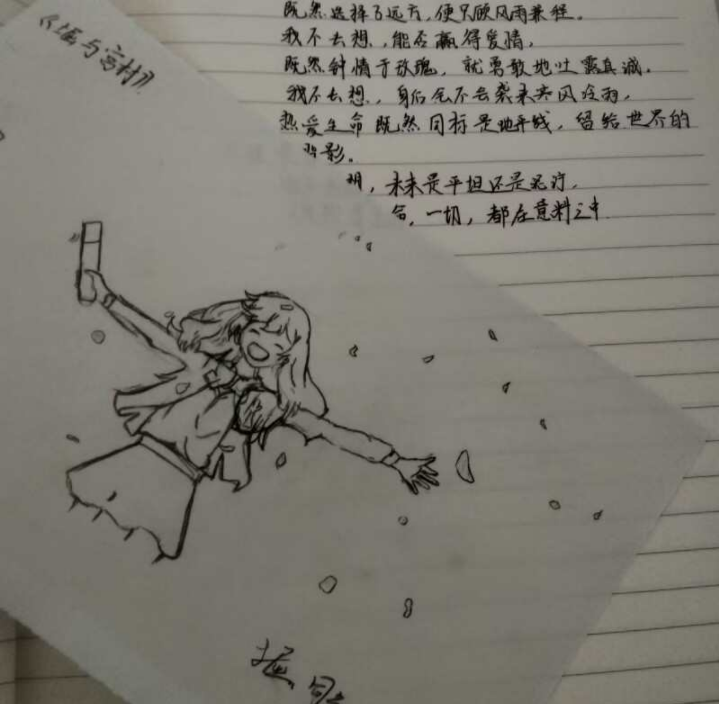 既然选择了远方,便只顾风雨兼程。
我不去想,能否赢得爱情,
既然钟情于玫瑰,就勇敢地吐露真诚。
我不去想,身后会不会袭来寒风冷雨,
热爱生命既然目标是地平线,留给世界的
背影。
未来是平坦还是泥泞,
命,一切,都在意料之中
《堀与宫村》
堀